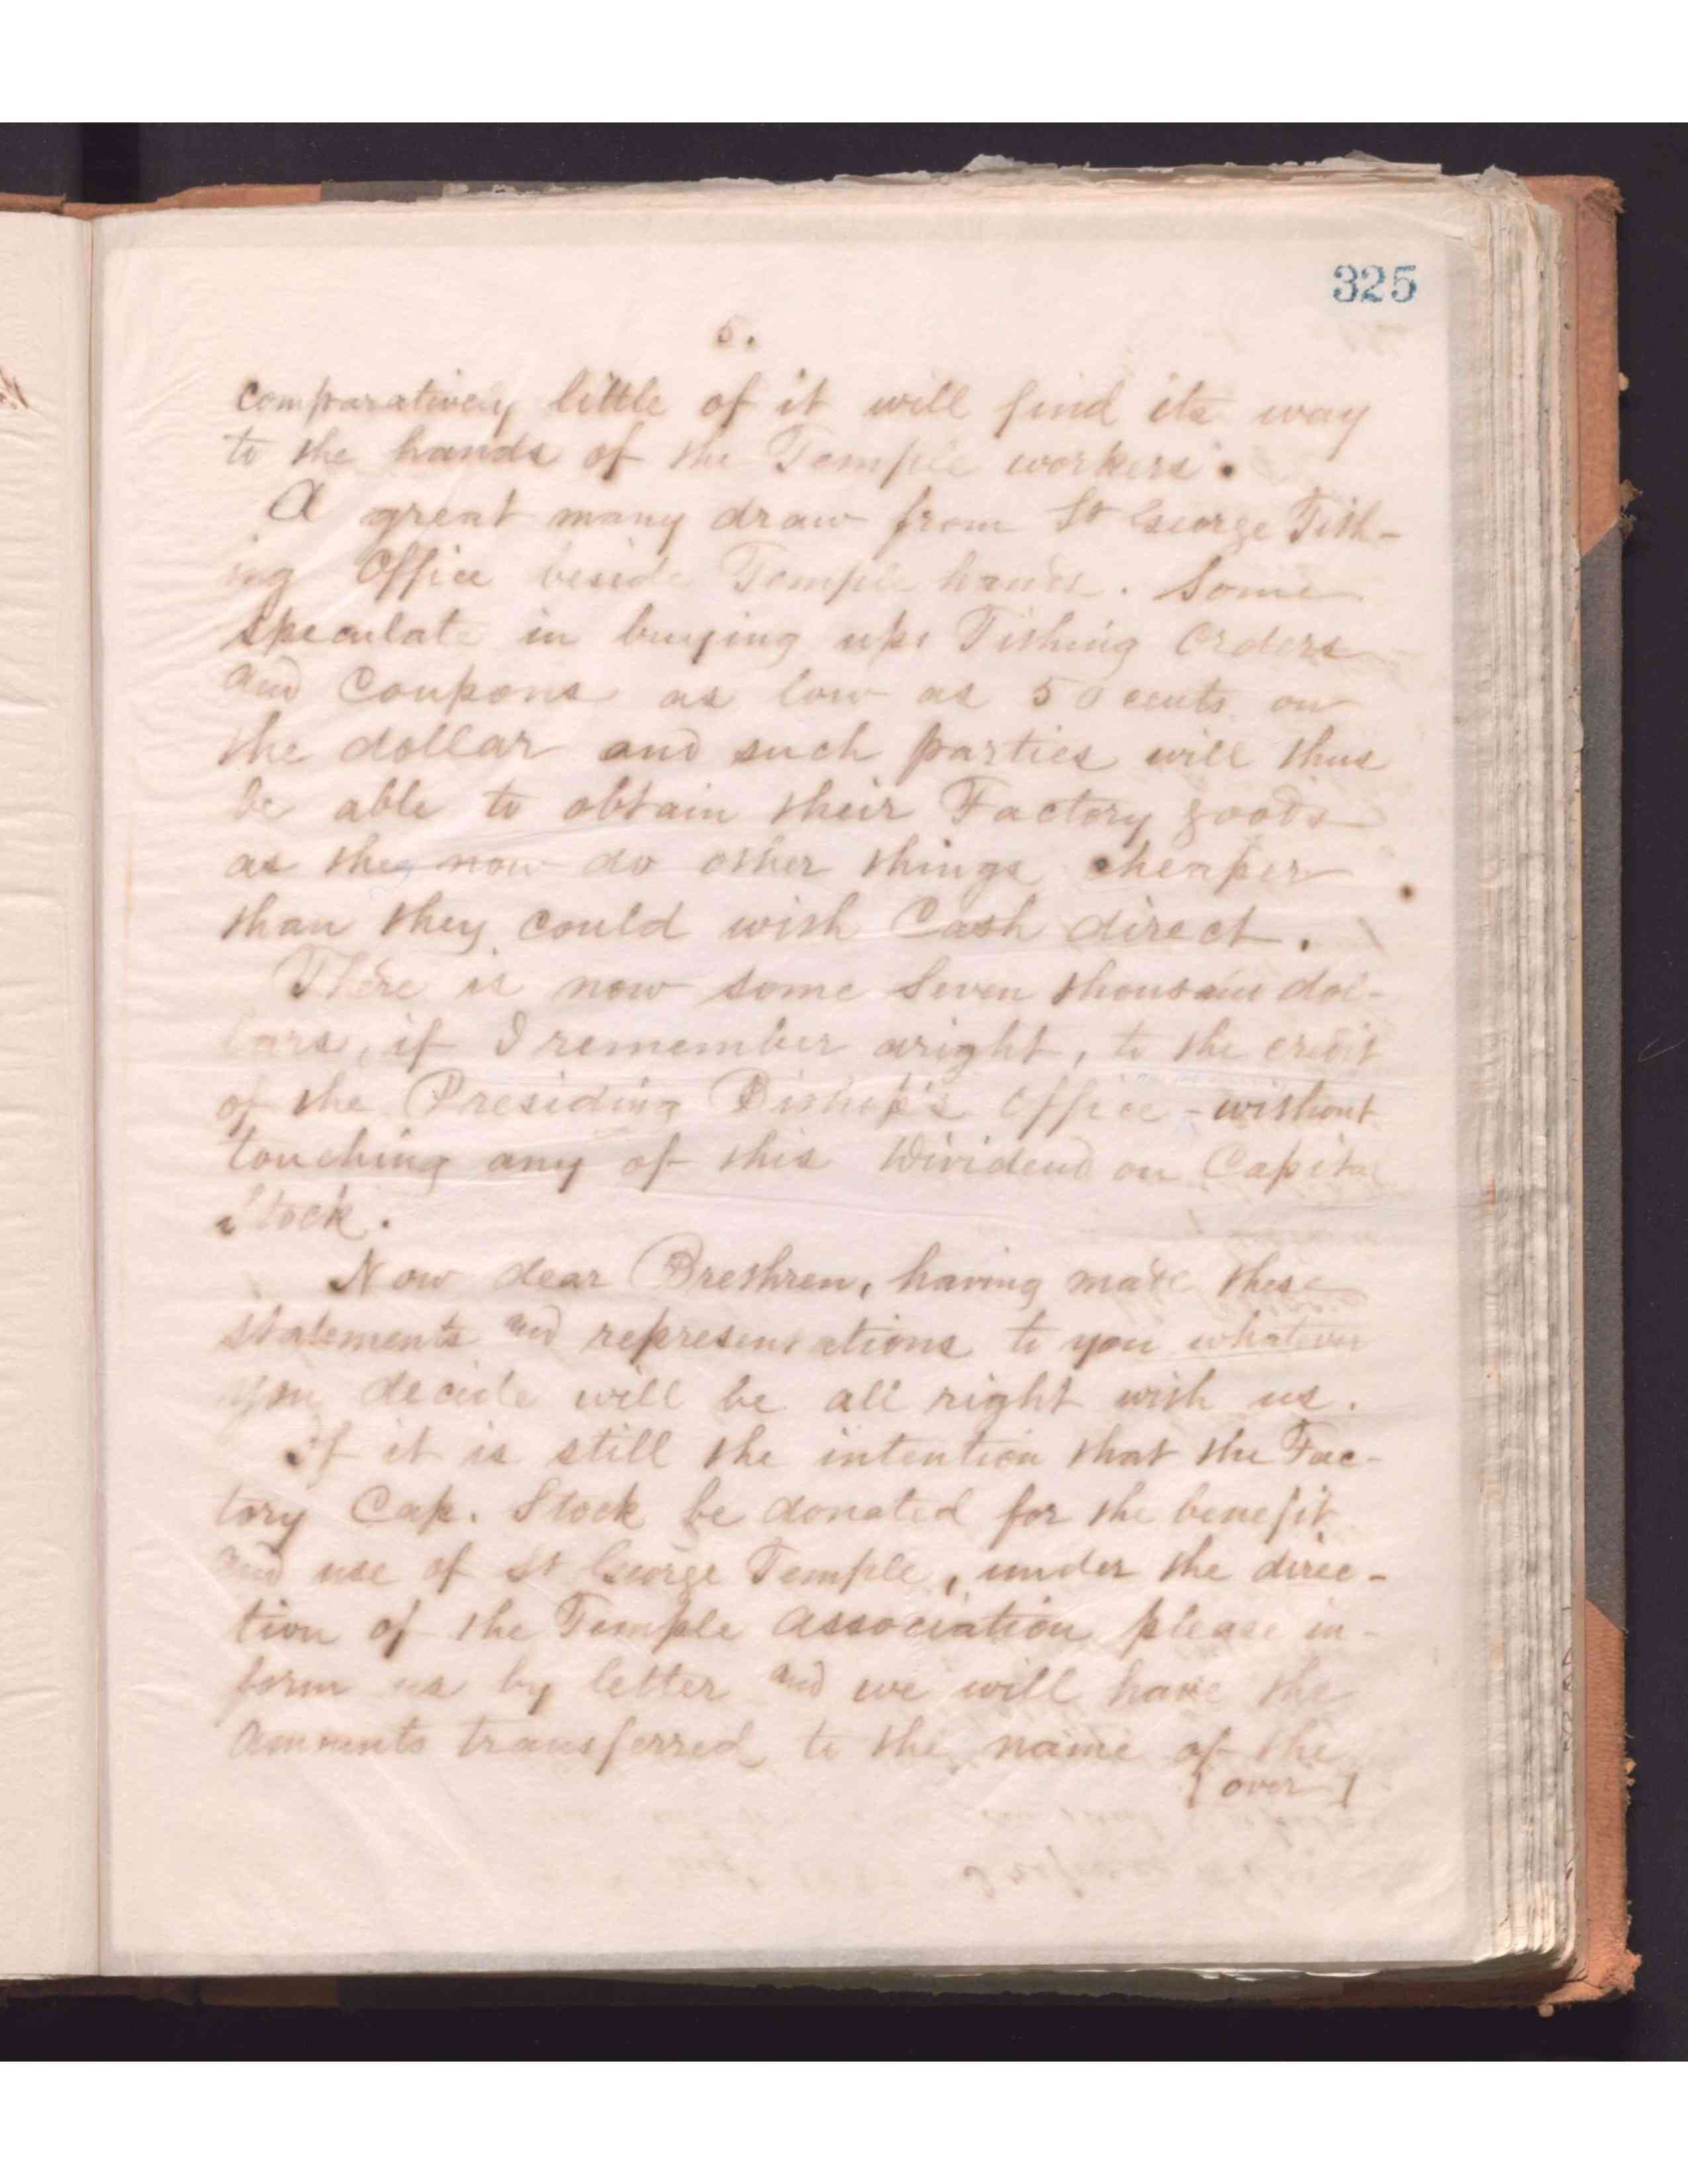 325
5.
comparatively little of it will find its way
to the hands of the Temple workers.
A great many draw from St George Tith-
ing Office beside Temple hands. Some
speculate in buying up Tithing Orders
and Coupons as low as 50 cents on
the dollar and such parties will thus
be able to obtain their Factory goods
as they now do other things cheaper
than they could with Cash direct.
There is now some Seven thousand dol-
lars, if I remember aright, to the credit
of the Presiding Bishop's Office - without
touching any of this Dividend on Capital
Stock.
Now dear Brethren, having made these
statements and representations to you whatever
you decide will be all right with us.
If it is still the intention that the Fac-
tory Cap. Stock be donated for the benefit
and use of St George Temple, under the direc-
tion of the Temple Association please in-
form us by letter and we will have the
amounts transferred to the name of the
[over]